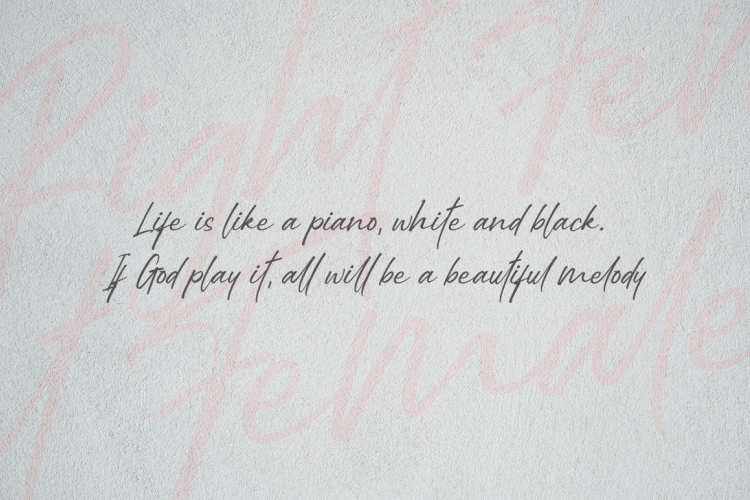 Right Female
Life is like a piano, white and black.
If God play it, all will be a beautiful melody
Female